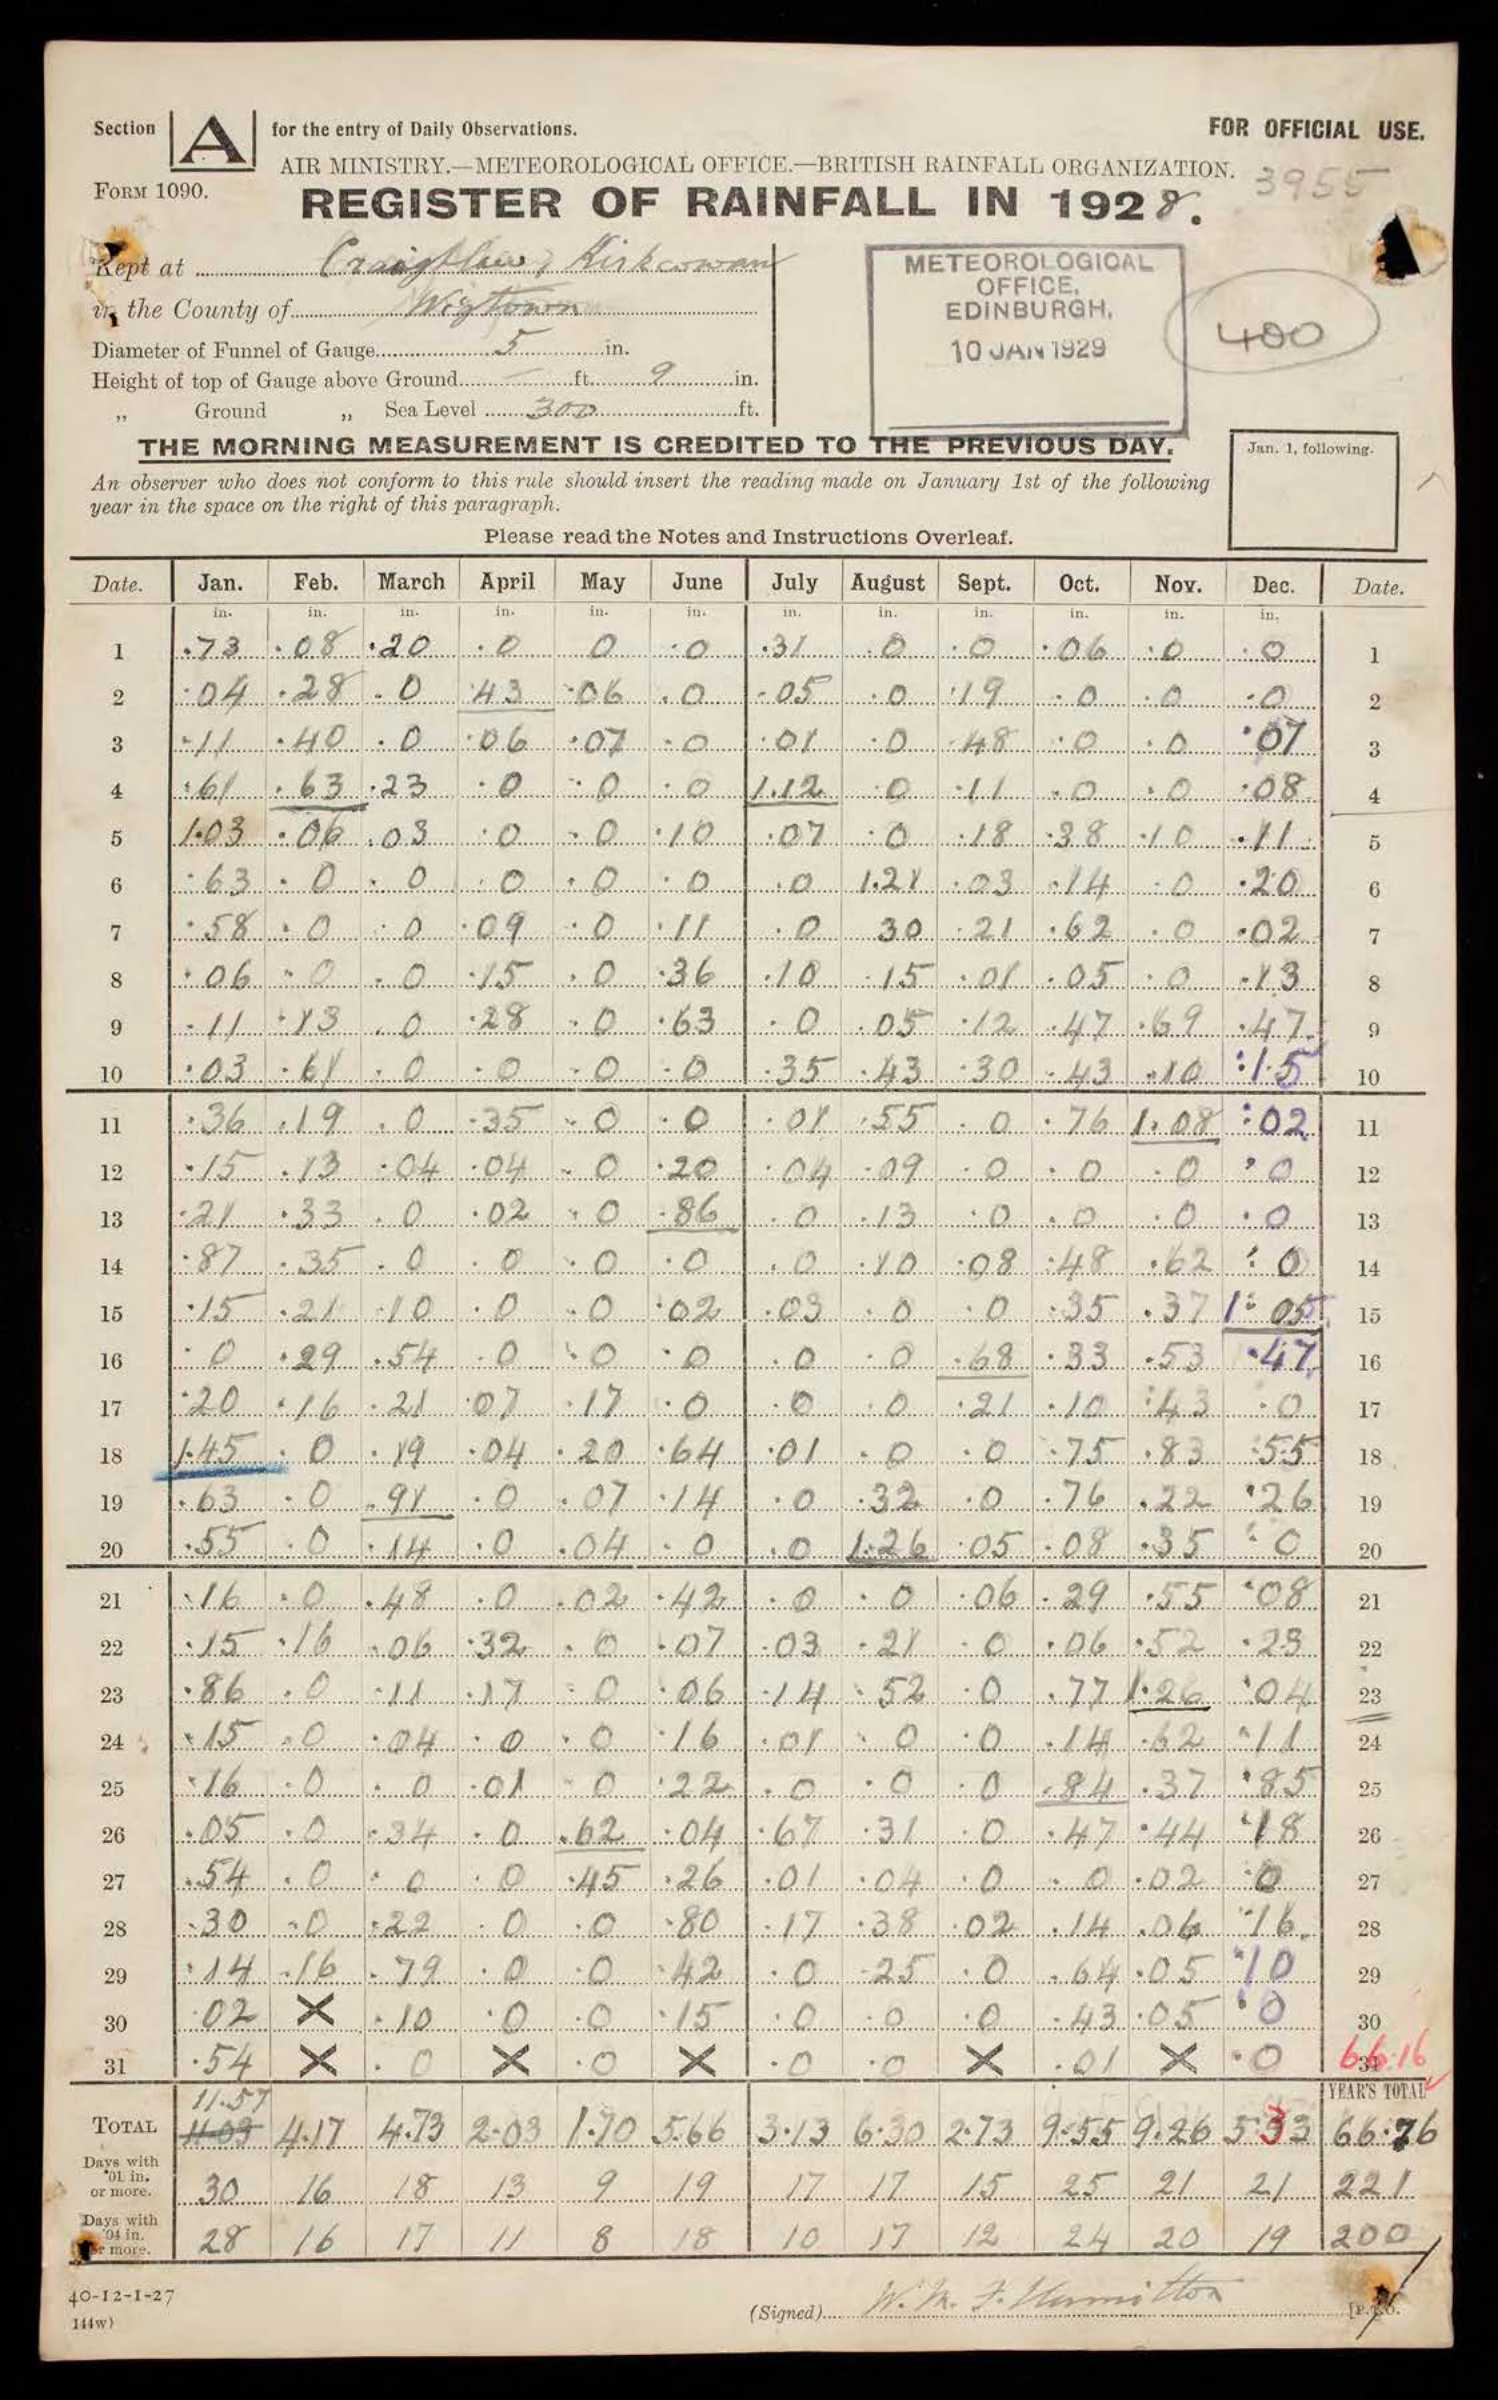 Section A for the entry of Daily Observations. FOR OFFICIAL USE.
AIR MINISTRY.—METEOROLOGICAL OFFICE.—BRITISH RAINFALL ORGANIZATION. 3955
FORM 1090.
REGISTER OF RAINFALL IN 1928.
Kept at Craighlaw, Kirkcowan
in the County of Wigtown
Diameter of Funnel of Gauge 5 in.
Height of top of Gauge above Ground — ft. 9 in.
„ Ground „ Sea Level 300 ft.
METEOROLOGICAL
OFFICE,
EDINBURGH.
10 JAN 1929
400
THE MORNING MEASUREMENT IS CREDITED TO THE PREVIOUS DAY.
An observer who does not conform to this rule should insert the reading made on January 1st of the following
year in the space on the right of this paragraph.
Jan. 1, following.
Please read the Notes and Instructions Overleaf.
Date. Jan. Feb. March April May June July August Sept. Oct. Nov. Dec. Date.
in. in. in. in. in. in. in. in. in. in. in. in.
1 .73 .08 .20 .0 0 .0 .31 .0 .0 .06 .0 .0 1
2 .04 .28 .0 .43 .06 .0 .05 .0 .19 .0 .0 .0 2
3 .11 .40 .0 .06 .07 .0 .01 .0 .48 .0 .0 .07 3
4 .61 .63 .23 .0 .0 .0 1.12 .0 .11 .0 .0 .08 4
5 1.03 .06 .03 .0 .0 .10 .07 .0 .18 .38 .10 .11 5
6 .63 .0 .0 .0 .0 .0 .0 1.21 .03 .14 .0 .20 6
7 .58 .0 .0 .09 .0 .11 .0 30 .21 .62 .0 .02 7
8 .06 .0 .0 .15 .0 .36 .10 .15 .01 .05 .0 .13 8
9 .11 .13 .0 .28 .0 .63 .0 .05 .12 .47 .69 .47 9
10 .03 .61 .0 .0 .0 .0 .35 .43 .30 .43 .10 .15 10
11 .36 .19 .0 .35 .0 .0 .01 .55 .0 .76 1.08 .02 11
12 .15 .13 .04 .04 .0 .20 .04 .09 .0 .0 .0 .0 12
13 .21 .33 .0 .02 .0 .86 .0 .13 .0 .0 .0 .0 13
14 .87 .35 .0 .0 .0 .0 .0 .10 .08 .48 .62 .0 14
15 .15 .21 .10 .0 .0 .02 .03 .0 .0 .35 .37 1.05 15
16 .0 .29 .54 .0 .0 .0 .0 .0 .68 .33 .53 .47 16
17 .20 .16 .21 .07 .17 .0 .0 .0 .21 .10 .43 .0 17
18 1.45 .0 .19 .04 .20 .64 .01 .0 .0 .75 .83 .55 18
19 .63 .0 .91 .0 .07 .14 .0 .32 .0 .76 .22 .26 19
20 .55 .0 .14 .0 .04 .0 .0 1.26 .05 .08 .35 .0 20
21 .16 .0 .48 .0 .02 .42 .0 .0 .06 .29 .55 .08 21
22 .15 .16 .06 .32 .0 .07 .03 .21 .0 .06 .52 .23 22
23 .86 .0 .11 .17 .0 .06 .14 .52 .0 .77 1.26 .04 23
24 .15 .0 .04 .0 .0 .16 .01 .0 .0 .14 .62 .11 24
25 .16 .0 .0 .01 .0 .22 .0 .0 .0 .84 .37 .85 25
26 .05 .0 .34 .0 .62 .04 .67 .31 .0 .47 .44 .18 26
27 .54 .0 .0 .0 .45 .26 .01 .04 .0 .0 .02 .0 27
28 .30 .0 .22 .0 .0 .80 .17 .38 .02 .14 .06 .16 28
29 .14 .16 .79 .0 .0 .42 .0 .25 .0 .64 .05 .10 29
30 .02 X .10 .0 .0 .15 .0 .0 .0 .43 .05 .0 30
31 .54 X .0 X .0 X .0 .0 X .01 X .0 31 66.16
11.57 YEAR'S TOTAL
TOTAL 11.03 4.17 4.73 2.03 1.70 5.66 3.13 6.30 2.73 9.55 9.26 5.33 66.76
Days with .01 in. or more. 30 16 18 13 9 19 17 17 15 25 21 21 221
Days with .04 in. or more. 28 16 17 11 8 18 10 17 12 24 20 19 200
40-12-1-27
144w)
(Signed) W. M. F. Hamilton [P.T.O.